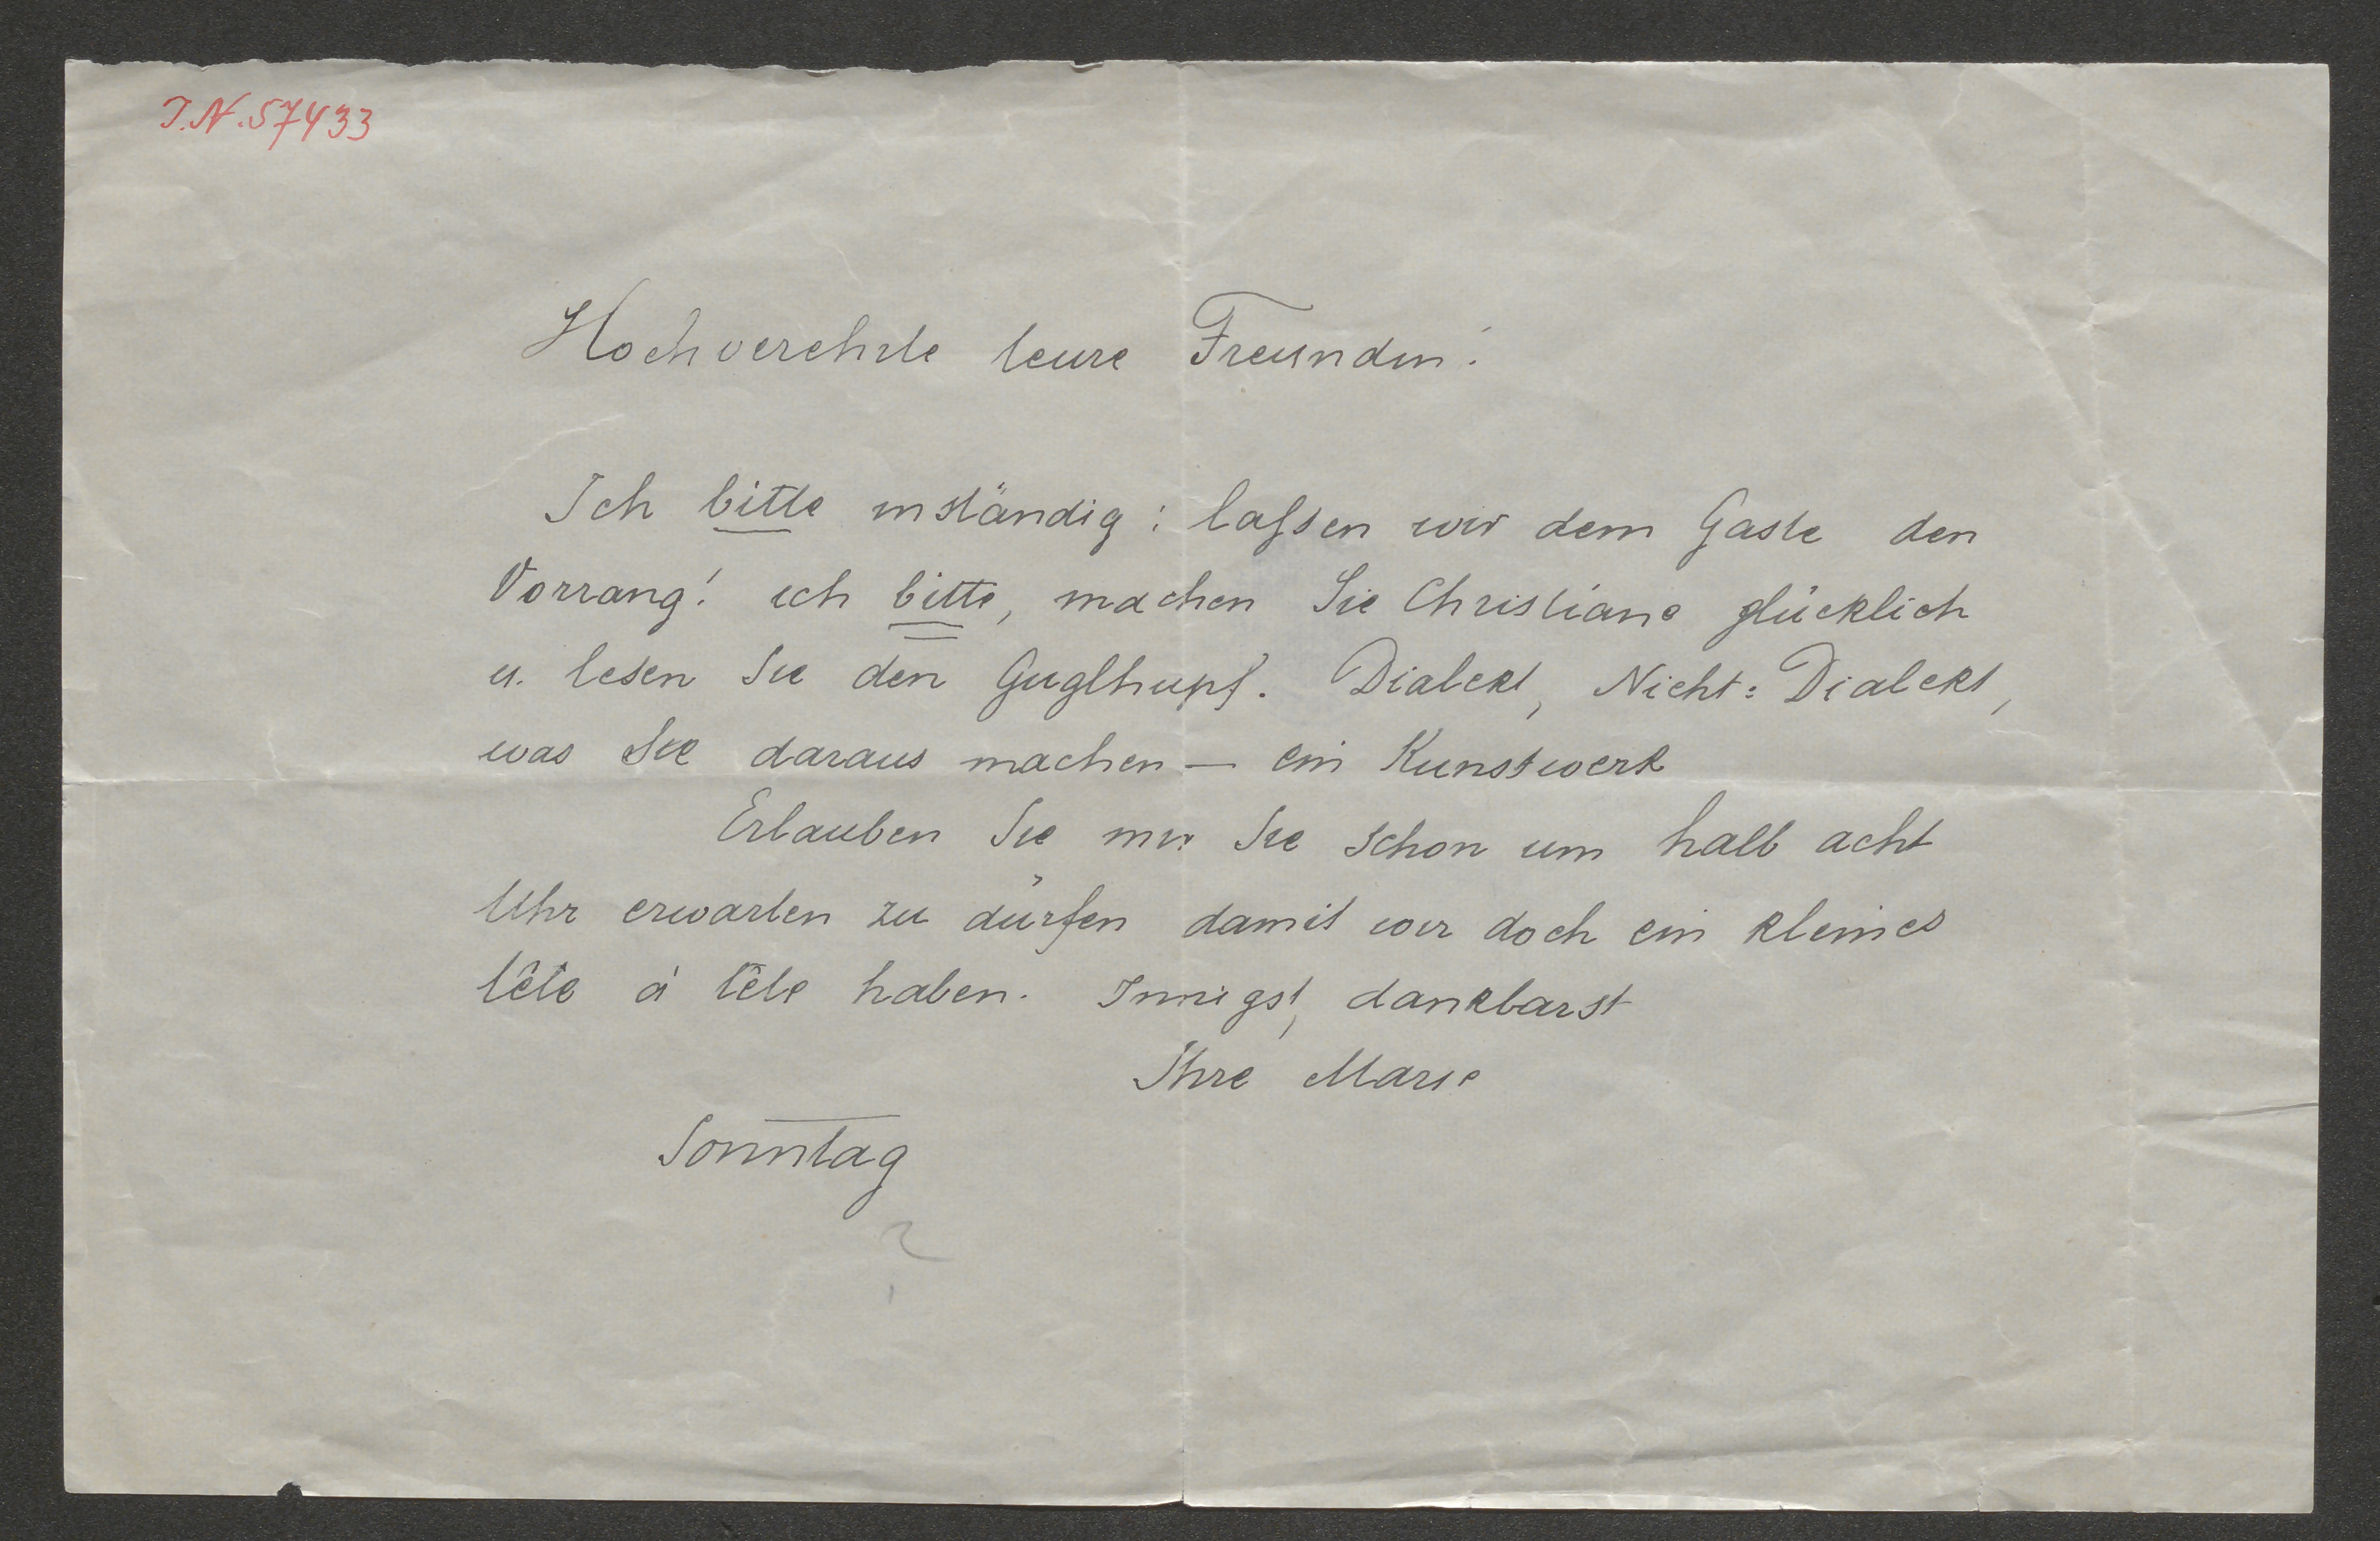 J.N. 57433
Hochverehrte teure Freundin!
Ich bitte inständig: laſsen wir dem Gaste den
Vorrang! ich bitte, machen Sie Christiane glücklich
u. lesen Sie den Guglhupf. Dialekt, Nicht=Dialekt,
was Sie daraus machen — ein Kunstwerk
Erlauben Sie mir Sie schon um halb acht
Uhr erwarten zu dürfen damit wir doch ein kleines
tête à tête haben. Innigst, dankbarst
Ihre Marie
Sonntag
?